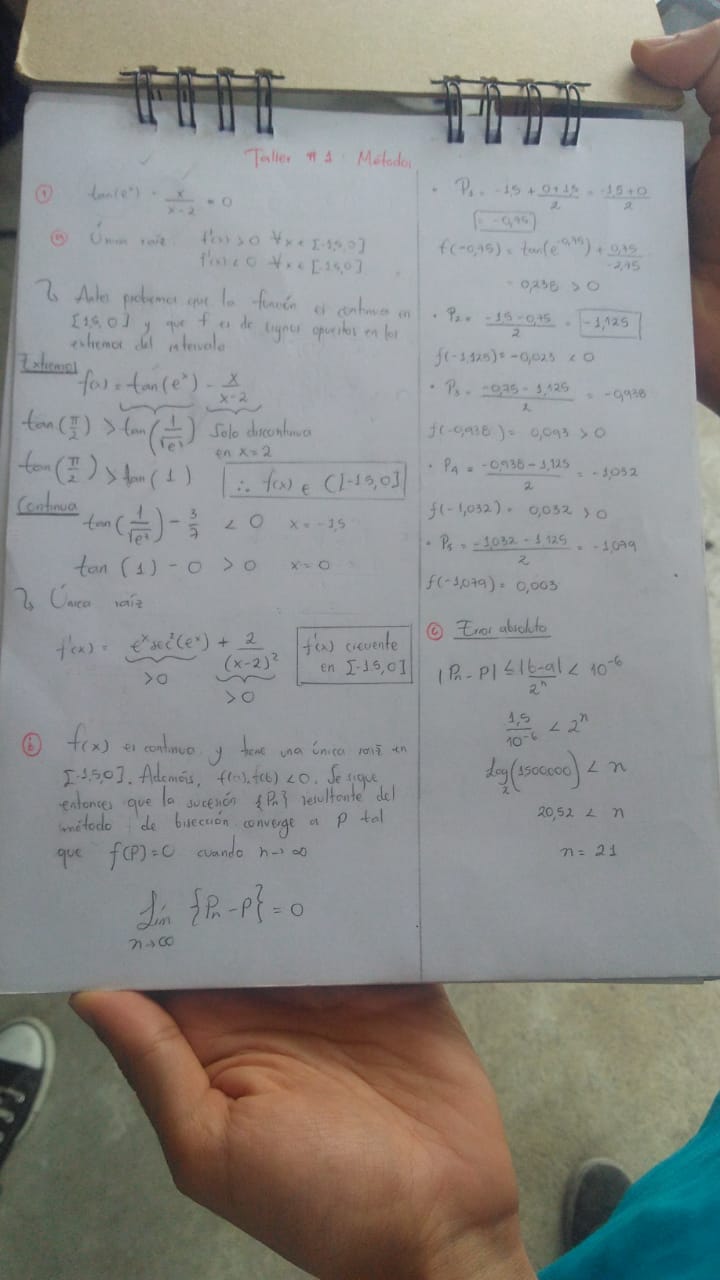 Taller #1 Métodos
① tan(eˣ) - x/(x-2) = 0
ⓐ Única raíz: f'(x) > 0 ∀x ∈ [-1,5,0]
f'(x) < 0 ∀x ∈ [-1,5,0]
Antes probemos que la función es continua en
[-1,5,0] y que f es de signos opuestos en los
extremos del intervalo
Extremos
f(x) = tan(eˣ) - x/(x-2)
tan(π/2) > tan(1/√e³) Solo discontinua
en x=2
tan(π/2) > tan(1) ∴ f(x) ∈ C[-1,5,0]
Continua
tan(1/√e³) - 3/7 < 0 x = -1,5
tan(1) - 0 > 0 x = 0
Única raíz
f'(x) = eˣsec²(eˣ) + 2/(x-2)² f'(x) creciente
en [-1.5,0]
>0 >0
ⓑ f(x) es continua y tiene una única raíz en
[-1,5,0]. Además, f(a).f(b) <0. Se sigue
entonces que la sucesión {Pn} resultante del
método de bisección converge a P tal
que f(P)=0 cuando n→∞
Lím {Pn-P} = 0
n→∞
• P₁ = -1.5 + (0+1.5)/2 = (-1.5+0)/2
= -0,75
f(-0,75) = tan(e^-0,75) + 0,75/-2,75
= 0,238 > 0
• P₂ = (-1.5-0.75)/2 = -1,125
f(-1,125) = -0,023 < 0
• P₃ = (-0,75-1.125)/2 = -0,938
f(-0,938) = 0,093 > 0
• P₄ = (-0,938-1,125)/2 = -1,032
f(-1,032) = 0,032 > 0
• P₅ = (-1,032-1.125)/2 = -1,079
f(-1,079) = 0,003
ⓒ Error absoluto
|Pn - P| ≤ |b-a|/2ⁿ < 10⁻⁶
1,5/10⁻⁶ < 2ⁿ
Log₂(1500000) < n
20,52 < n
n = 21